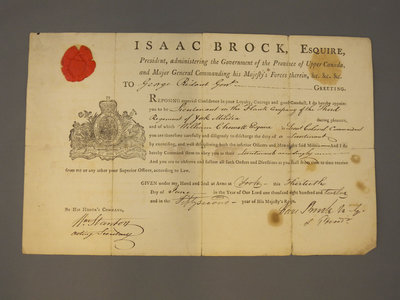 ISAAC BROCK, ESQUIRE,
President, administering the Government of the Province of Upper Canada,
and Major General Commanding his Majesty's Forces therein, &c. &c. &c.
TO George Ridout Gent. GREETING.
REPOSING especial Confidence in your Loyalty, Courage and good Conduct, I do hereby appoint
you to be Lieutenant in the Flank Company of the Third
Regiment of York Militia during pleasure,
and of which William Chewett Esquire is Lieut Colonel Commandant
you are therefore carefully and diligently to discharge the duty of Lieutenant
by exercising, and well disciplining both the inferior Officers and Men of said Militia—And I do
hereby Command them to obey you as their Lieutenant accordingly
And you are to observe and follow all such Orders and Directions as you shall from time to time receive
from me or any other your Superior Officers, according to Law.
GIVEN under my Hand and Seal at Arms at York this Thirtieth
Day of June in the Year of Our Lord one thousand eight hundred and twelve
and in the Fifty second year of his Majesty's Reign.
Isaac Brock
BY HIS HONOR'S COMMAND,
Wm Stanton
acting Secretary